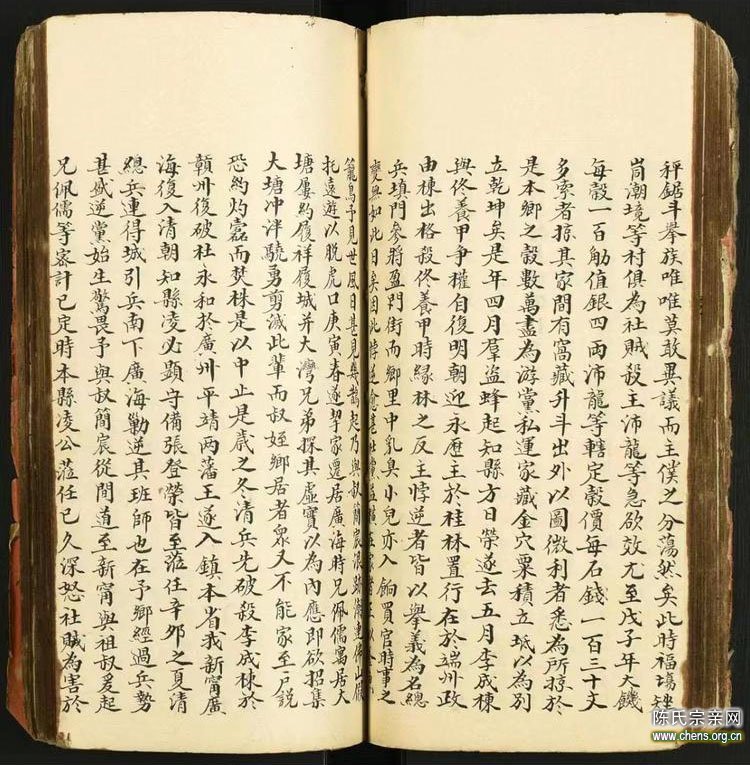 秤鋸斗舉族唯唯莫敢異議而主僕之分蕩然矣此時福塲𡊨
岗潮境等村俱為社賊殺主沛龍等急欲效尤至戊子年大饑
每穀一百觔值銀四両沛龍等轄定穀價每石錢一百三十文
多索者掠其家間有窩藏升斗出外以圖微利者悉為所掠於
是本鄉之穀數萬盡為游黨私運家藏金穴粟積立坻以為別
立乾坤矣是年四月羣盜蜂起知縣方日榮遂去五月李成棟
與佟養甲争權自復明朝迎永歷主於桂林置行在於端州政
由棟出格殺佟養甲時緣林之反主悖逆者皆以舉義為名總
兵填門叅將盈門街而鄉里中乳臭小兒亦入餉買官時事之
變無如此日矣因此悖逆愈
籠鳥予見世風日甚見幾 起乃與叔簡宸浪跡潮連佛山
托遠遊以脫虎口庚寅春遂挈家遷居廣海時兄佩儒寓居大
塘屢約履祥履城并大灣兄弟探其虛實以為內應即欲招集
大塘冲泮驍勇剪滅此輩而叔姪鄉居者衆又不能家至戶説
恐約灼露而焚林是以中止是歲之冬清兵先破殺李成棟於
贛州復破杜永和於廣州平靖两藩王遂入鎮本省我新甯廣
海復入清朝知縣凌必顕守備張登榮皆至蒞任辛夘之夏清
總兵連得城引兵南下廣海勦逆其班師也在予鄉經過兵勢
甚盛逆黨始生驚畏予與叔簡宸從間道至新甯與祖叔爰起
兄佩儒等密計已定時本縣凌公蒞任已久深怒社賊為害於
陈氏宗亲网
www.chens.org.cn